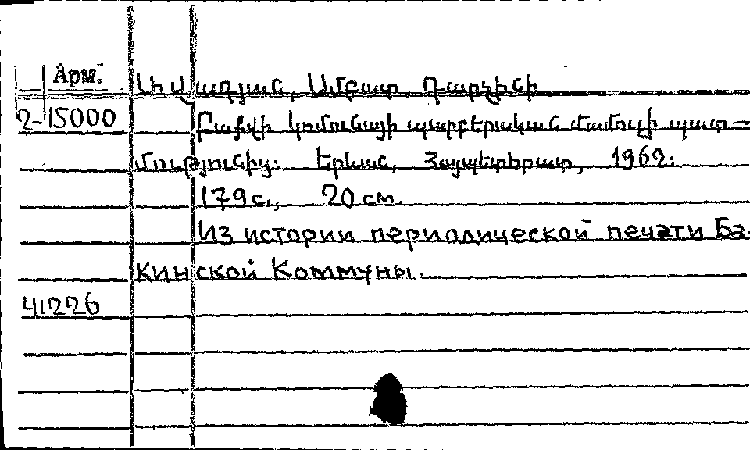 Арм.
Սմբատ
2-15000 Բաքվի կոմունայի պարբերական մամուլի պատ-
մությունից. Երևան, Հայպետհրատ, 1962.
179 с., 20 см.
Из истории периодической печати Ба-
кинской Коммуны.
41226